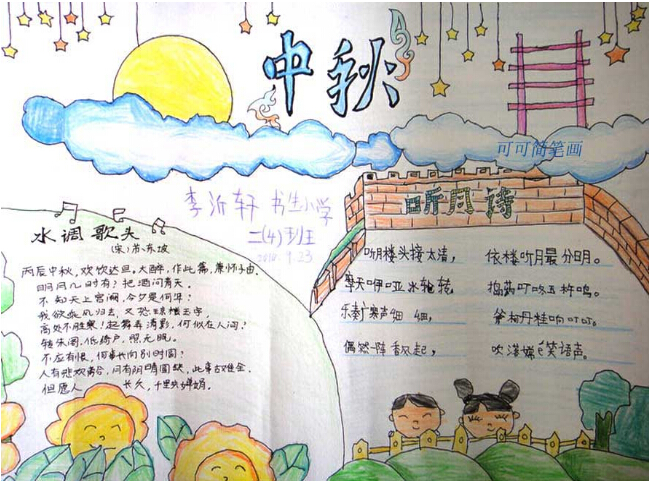 中秋
可可简笔画
李沂轩 书生小学
二(4)班
听月诗
水调歌头
(宋)苏东坡
丙辰中秋,欢饮达旦,大醉,作此篇,兼怀子由.
明月几时有?把酒问青天.
不知天上宫阙,今夕是何年?
我欲乘风归去,又恐琼楼玉宇,
高处不胜寒!起舞弄清影,何似在人间?
转朱阁,低绮户,照无眠.
不应有恨,何事长向别时圆?
人有悲欢离合,月有阴晴圆缺,此事古难全.
但愿人 长久,千里共婵娟.
听月楼头接太清, 依楼听月最分明.
摩天咿哑冰轮转, 捣药叮咚玉杵鸣.
乐奏广寒声细 细, 斧柯丹桂响叮叮.
偶然一阵香风起, 吹落嫦娥笑语声.